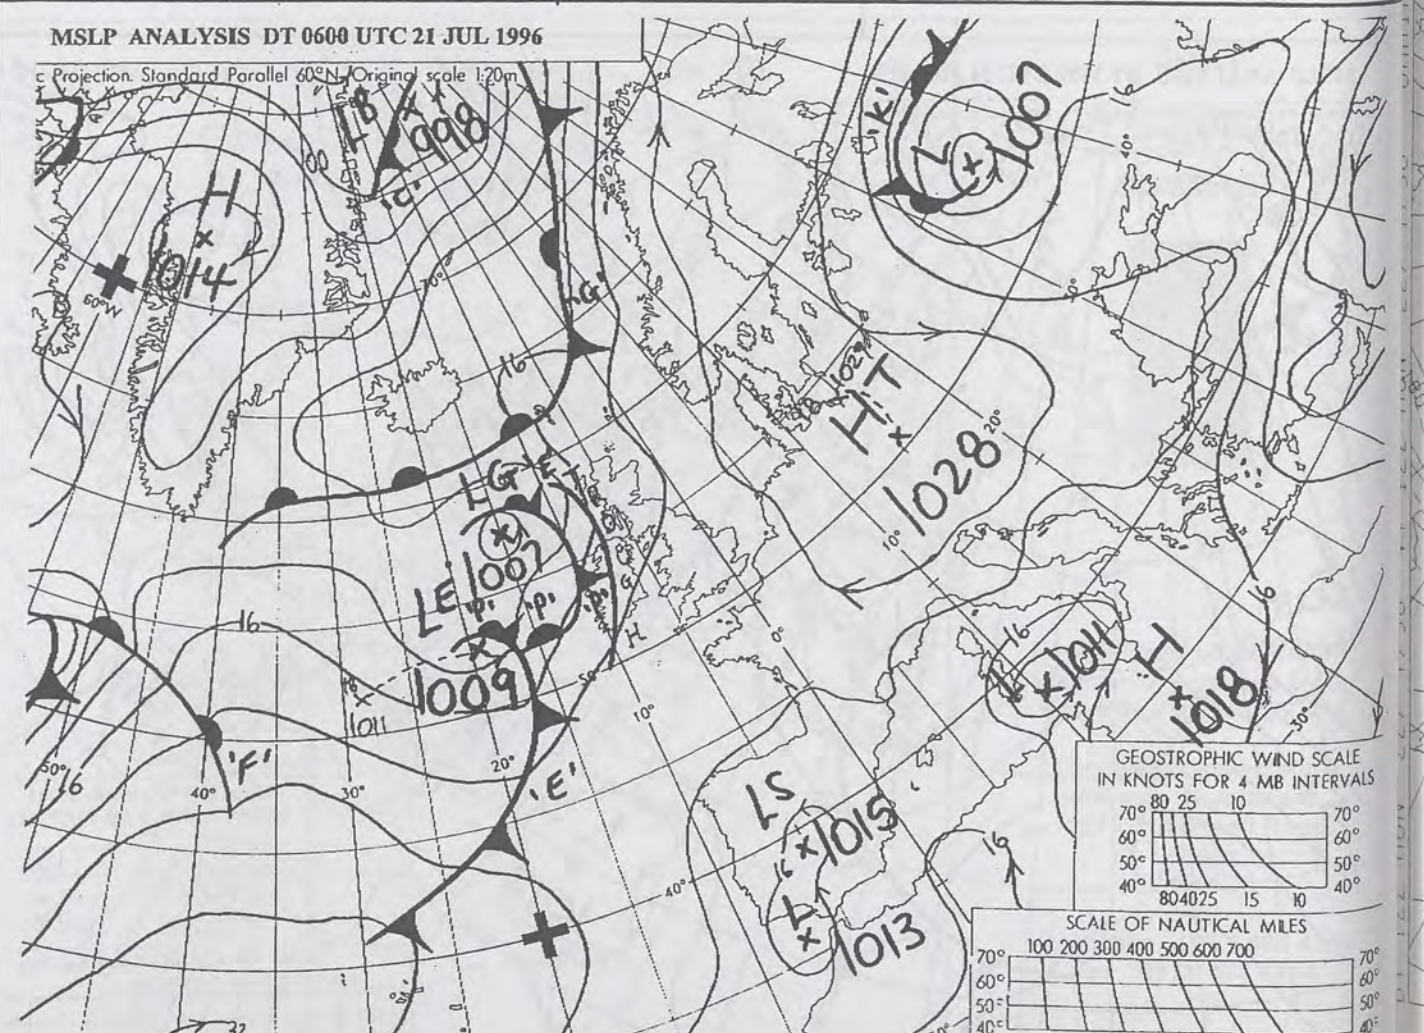 MSLP ANALYSIS DT 0600 UTC 21 JUL 1996
c Projection. Standard Parallel 60°N. Original scale 1:20m
LB
998
'C'
00
H
1014
60°W
70°
'G'
16
'K'
L
1007
16
40°
1029
H T
1028
20°
10°
LG 'E'
1007
LE
'P'
'P'
'P'
1009
1011
16
16
50°
'F'
40°
30°
20°
'E'
50
10°
0°
40°
LS
1015
L
1013
16
16
L
1011
H
1018
16
30°
GEOSTROPHIC WIND SCALE
IN KNOTS FOR 4 MB INTERVALS
80 25 10
70° 70°
60° 60°
50° 50°
40° 40°
80 40 25 15 10
SCALE OF NAUTICAL MILES
100 200 300 400 500 600 700
70° 70°
60° 60°
50° 50°
40° 40°